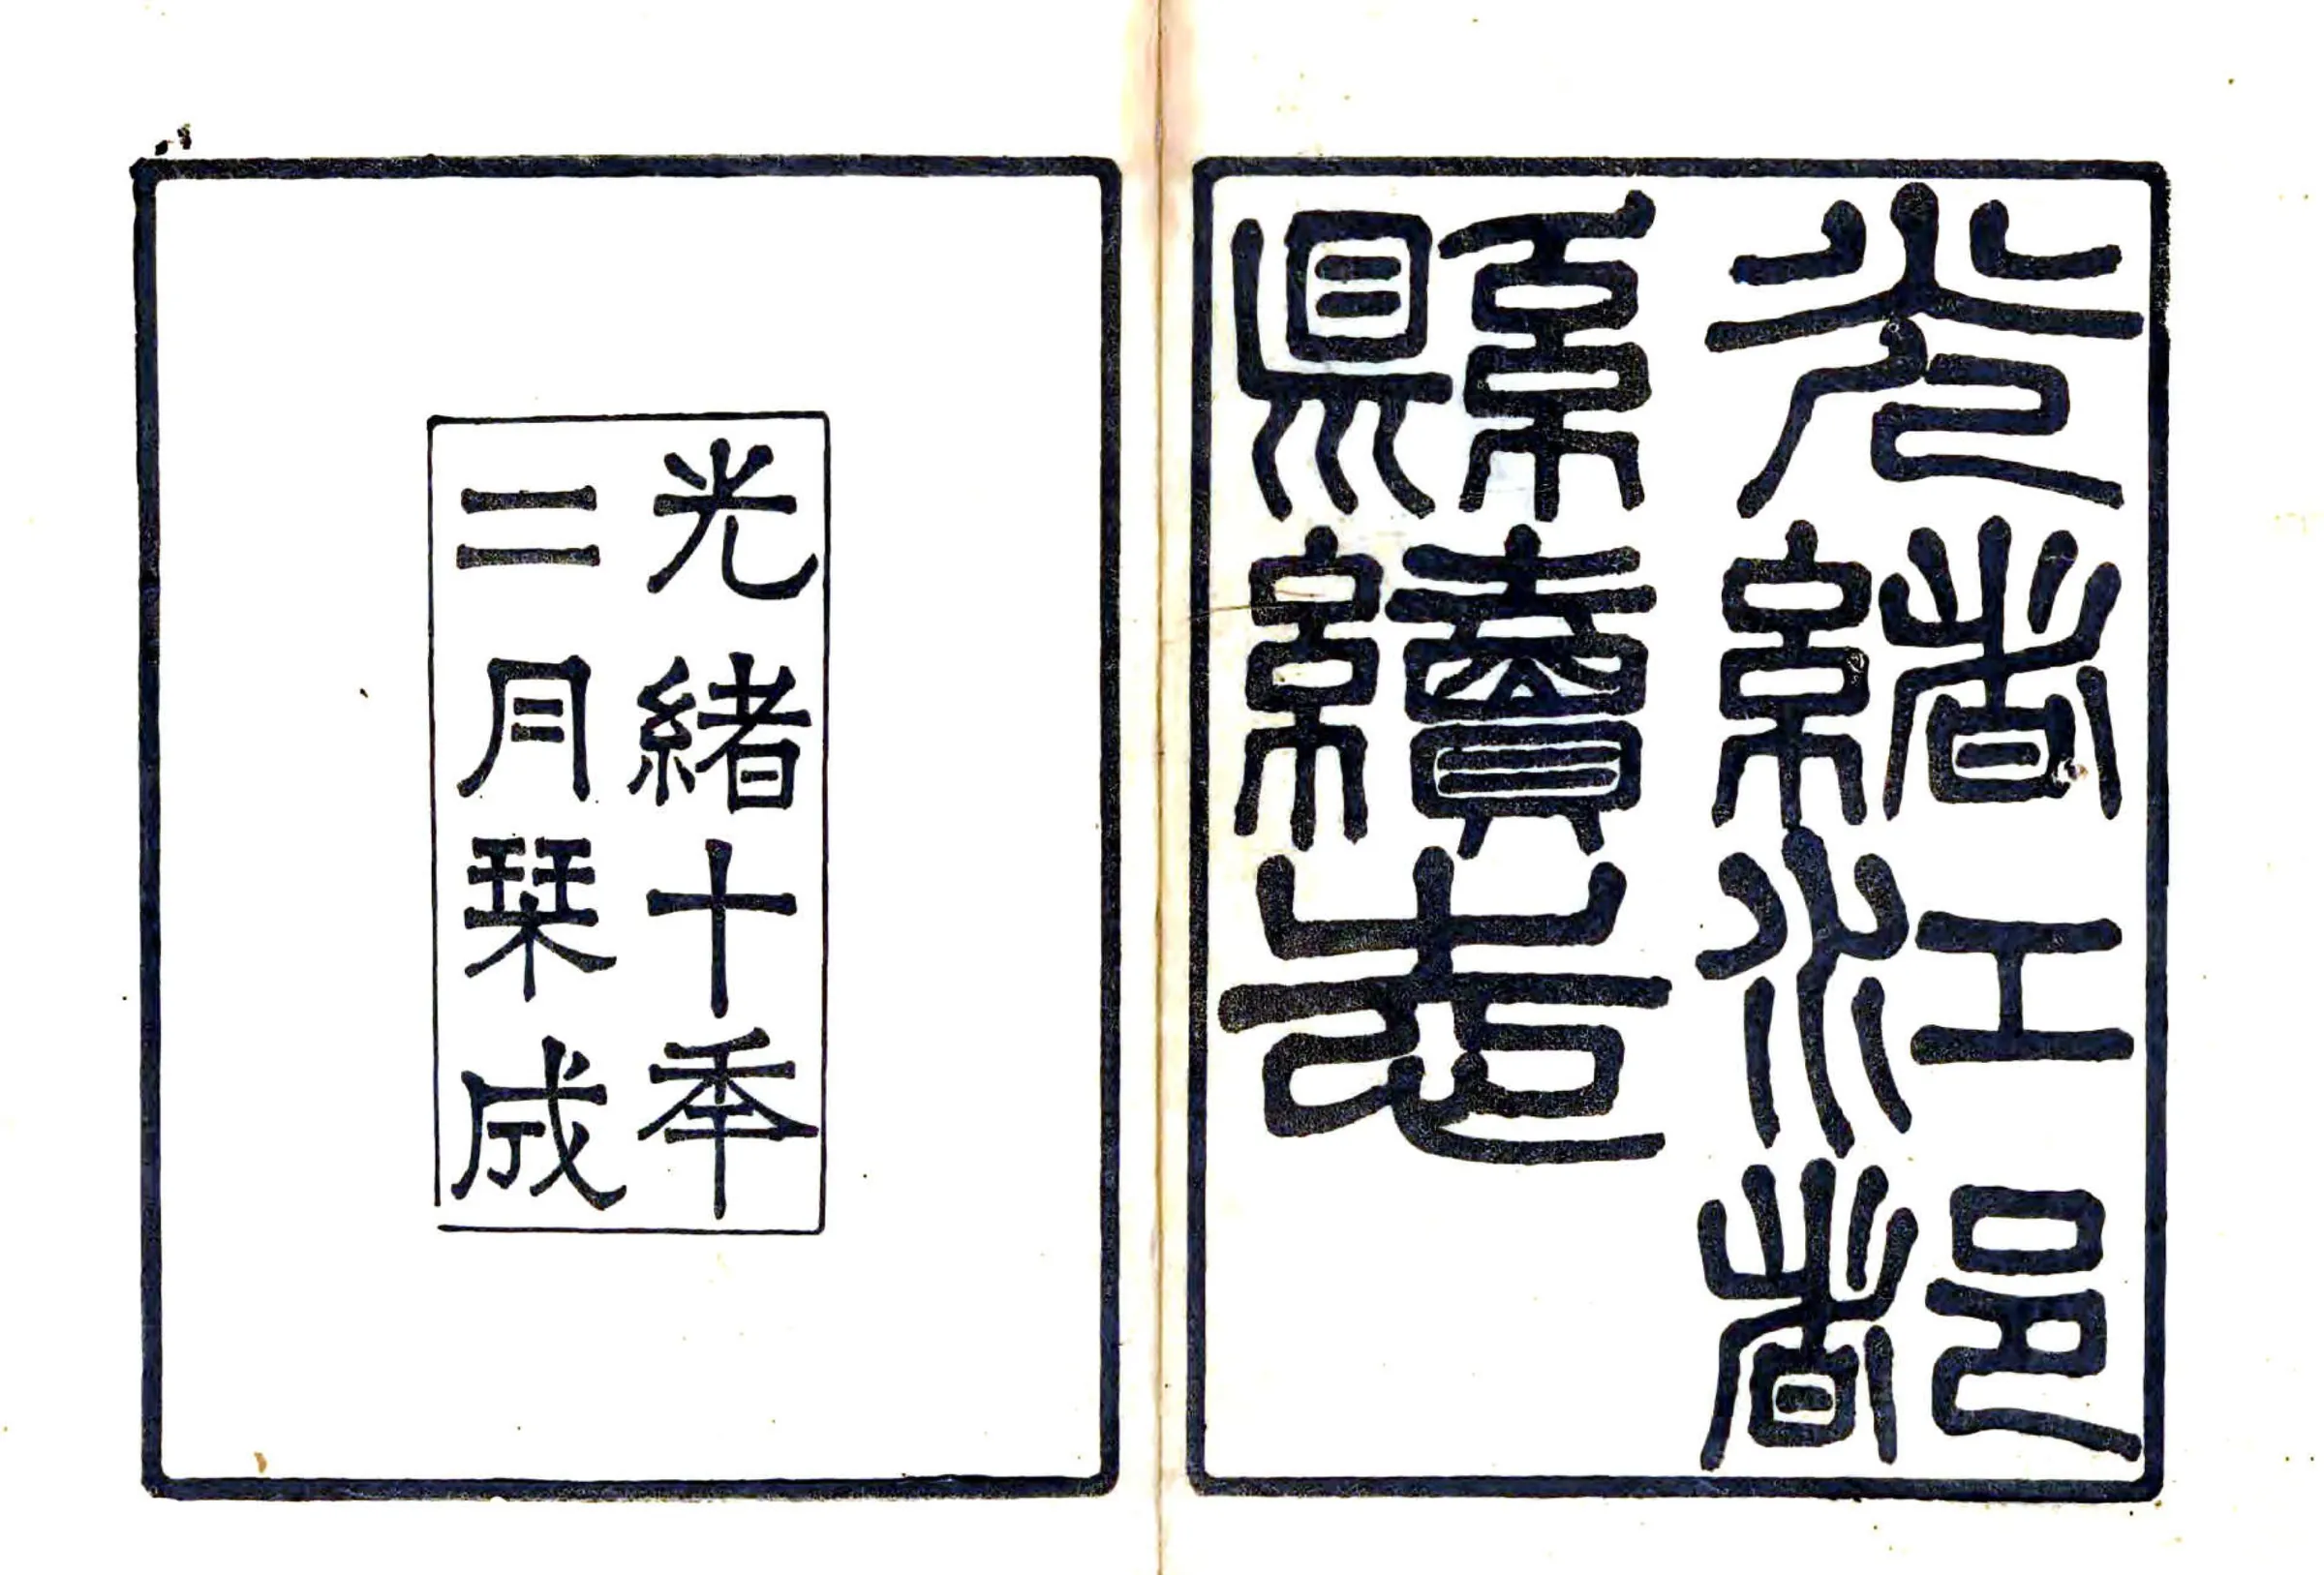 光緒江都
縣續志
光緒十年
二月栞成